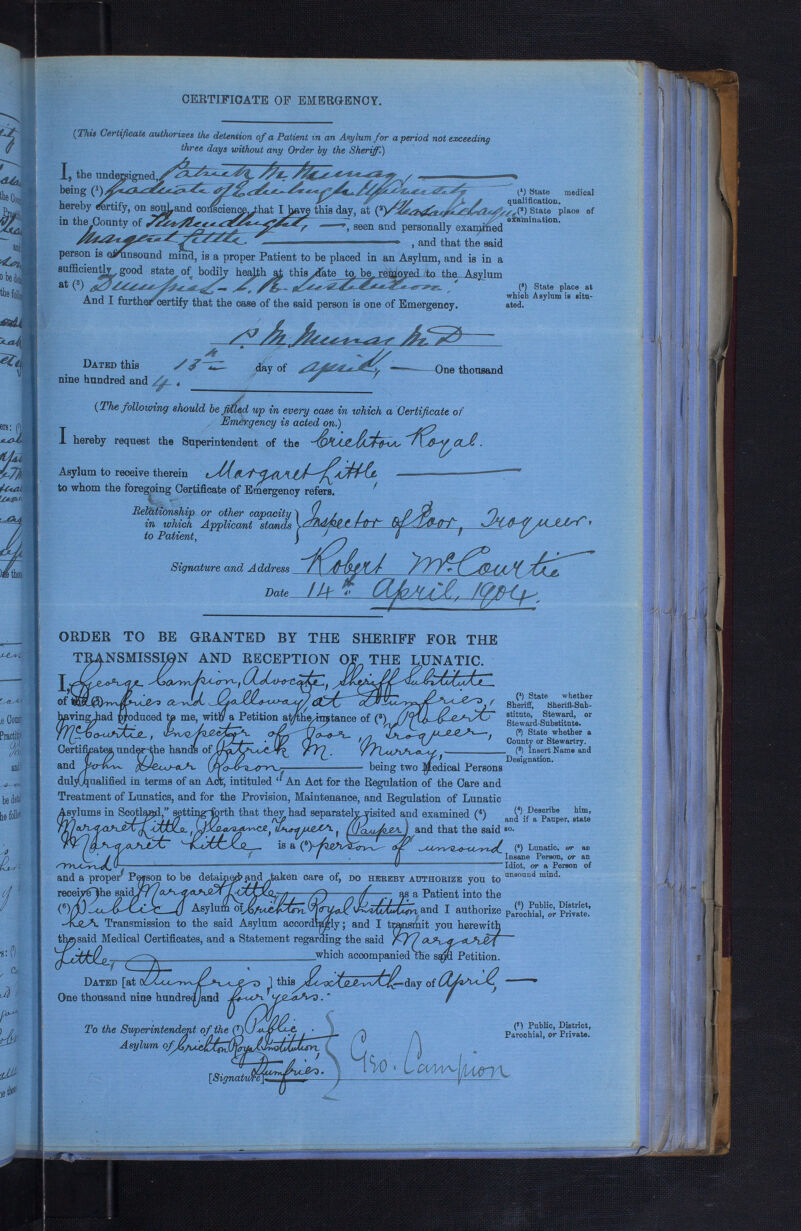 CERTIFICATE OF EMERGENCY.
(This Certificate authorizes the detention of a Patient in an Asylum for a period not exceeding
three days without any Order by the Sheriff.)
I, the undersigned, Patrick M. Murray,
being (¹) Graduate of Edinburgh University
hereby certify, on soul and conscience, that I have this day, at (²)
in the County of Kirkcudbright, seen and personally examined
Margaret Little, and that the said
person is of unsound mind, is a proper Patient to be placed in an Asylum, and is in a
sufficiently good state of bodily health at this date to be removed to the Asylum
at (³) Dumfries - C. R. Institution.
And I further certify that the case of the said person is one of Emergency.
(¹) State medical
qualification.
(²) State place of
examination.
(³) State place at
which Asylum is situ-
ated.
P. M. Murray M.D
DATED this 13th day of April, One thousand
nine hundred and 4.
(The following should be filled up in every case in which a Certificate of
Emergency is acted on.)
I hereby request the Superintendent of the Crichton Royal.
Asylum to receive therein Margaret Little
to whom the foregoing Certificate of Emergency refers.
Relationship or other capacity
in which Applicant stands
to Patient,
Inspector of Poor, Troqueer.
Signature and Address Robert McCourtie
Date 14th April, 1904.
ORDER TO BE GRANTED BY THE SHERIFF FOR THE
TRANSMISSION AND RECEPTION OF THE LUNATIC.
I, George Campion, Advocate, Sheriff Substitute
of Dumfries and Galloway at Dumfries,
having had produced to me, with a Petition at the instance of (³) Robert
McCourtie, Inspector of Poor, Troqueer,
Certificates under the hands of Patrick M. Murray,
and John Dewar Robson, being two Medical Persons
duly qualified in terms of an Act, intituled "An Act for the Regulation of the Care and
Treatment of Lunatics, and for the Provision, Maintenance, and Regulation of Lunatic
Asylums in Scotland," setting forth that they had separately visited and examined (⁴)
Margaret Little, Pleasance, Troqueer, (Pauper) and that the said
Margaret Little is a (⁵) person of unsound
mind,
and a proper Person to be detained and taken care of, DO HEREBY AUTHORIZE you to
receive the said Margaret Little, as a Patient into the
(⁶) Public Asylum of Crichton Royal Institution and I authorize
her Transmission to the said Asylum accordingly; and I transmit you herewith
the said Medical Certificates, and a Statement regarding the said Margaret
Little, which accompanied the said Petition.
(¹) State whether
Sheriff, Sheriff-Sub-
stitute, Steward, or
Steward-Substitute.
(²) State whether a
County or Stewartry.
(³) Insert Name and
Designation.
(⁴) Describe him,
and if a Pauper, state
so.
(⁵) Lunatic, or an
Insane Person, or an
Idiot, or a Person of
unsound mind.
(⁶) Public, District,
Parochial, or Private.
DATED [at Dumfries] this Sixteenth day of April,
One thousand nine hundred and four years.
To the Superintendent of the (⁷) Public
Asylum of Crichton Royal Institution,
Dumfries.
(⁷) Public, District,
Parochial, or Private.
[Signature] Geo. Campion